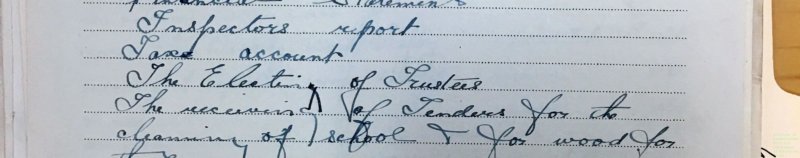 financial Statements
Inspectors report
Taxe account
The Electing of Trustees
The receiving of Tenders for the
cleaning of school & for wood for